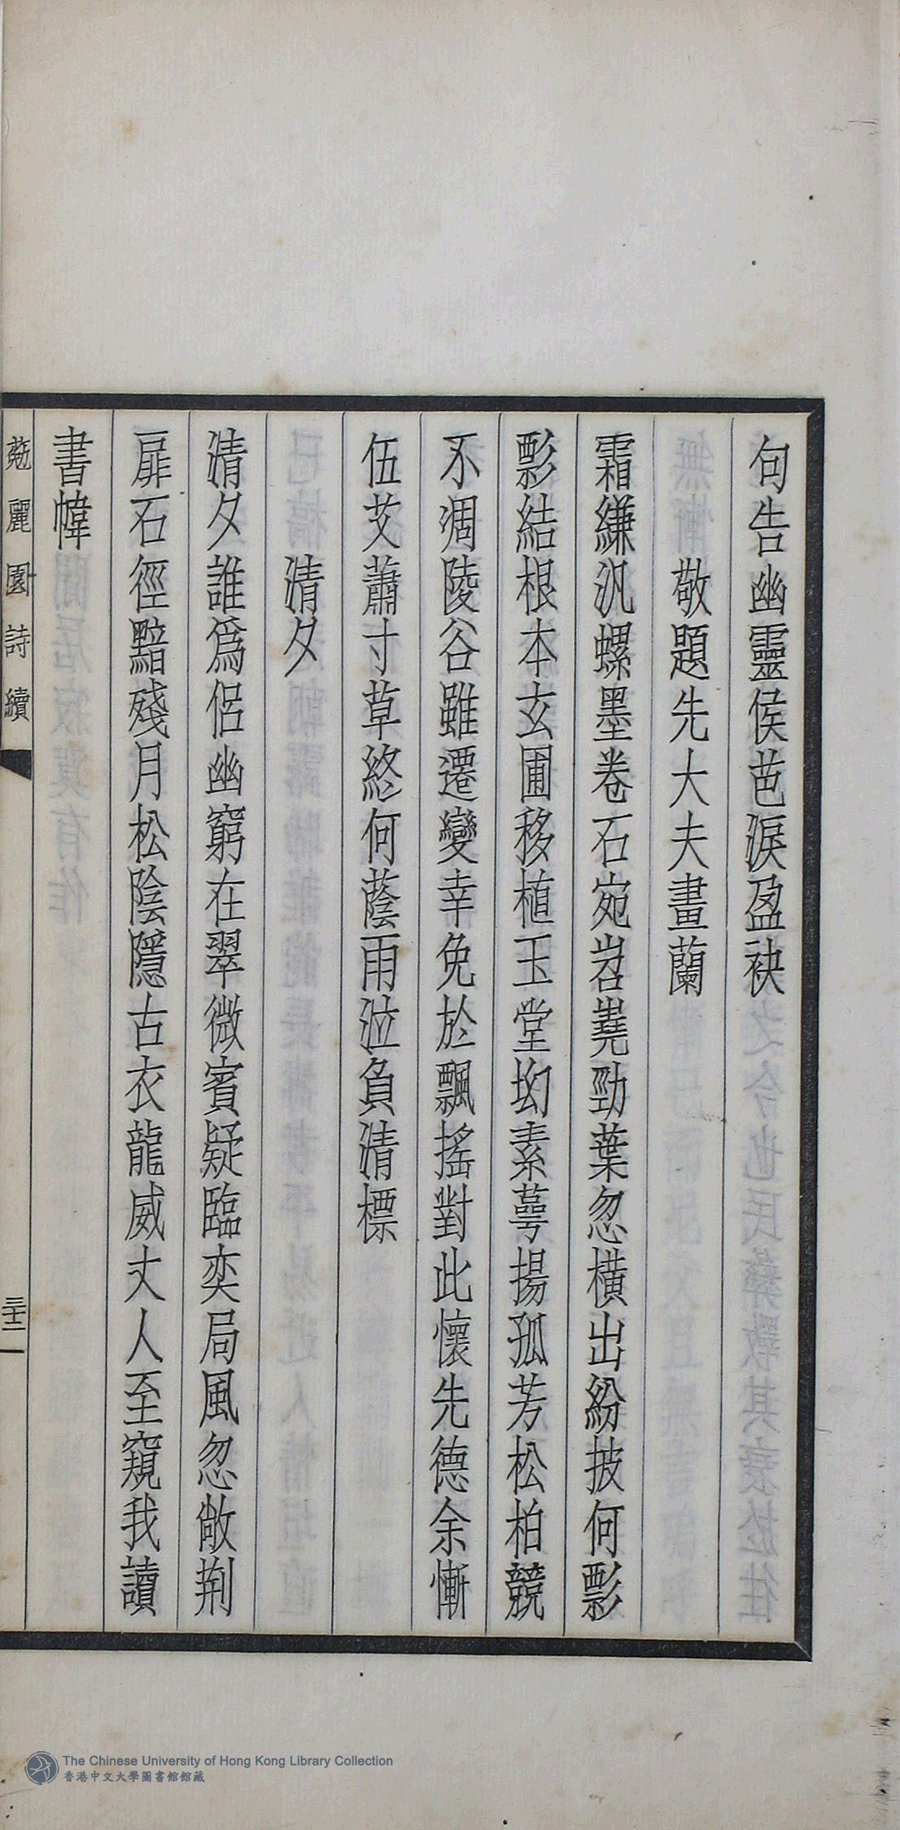 句告幽靈侯芭淚盈袂
敬題先大夫畫蘭
霜縑汎螺墨卷石宛岧嶤勁葉忽橫出紛披何影
影結根本玄圃移植玉堂坳素萼揚孤芳松柏競
不凋陵谷雖遷變幸免於飄搖對此懷先德余慚
伍艾蕭寸草終何蔭雨泣負清標
清夕
清夕誰爲侶幽窮在翠微賓疑臨奕局風忽敞荆
扉石徑黯殘月松陰隱古衣龍威丈人至窺我讀
書幃
葂麗園詩續
三十二
The Chinese University of Hong Kong Library Collection
香港中文大學圖書館館藏